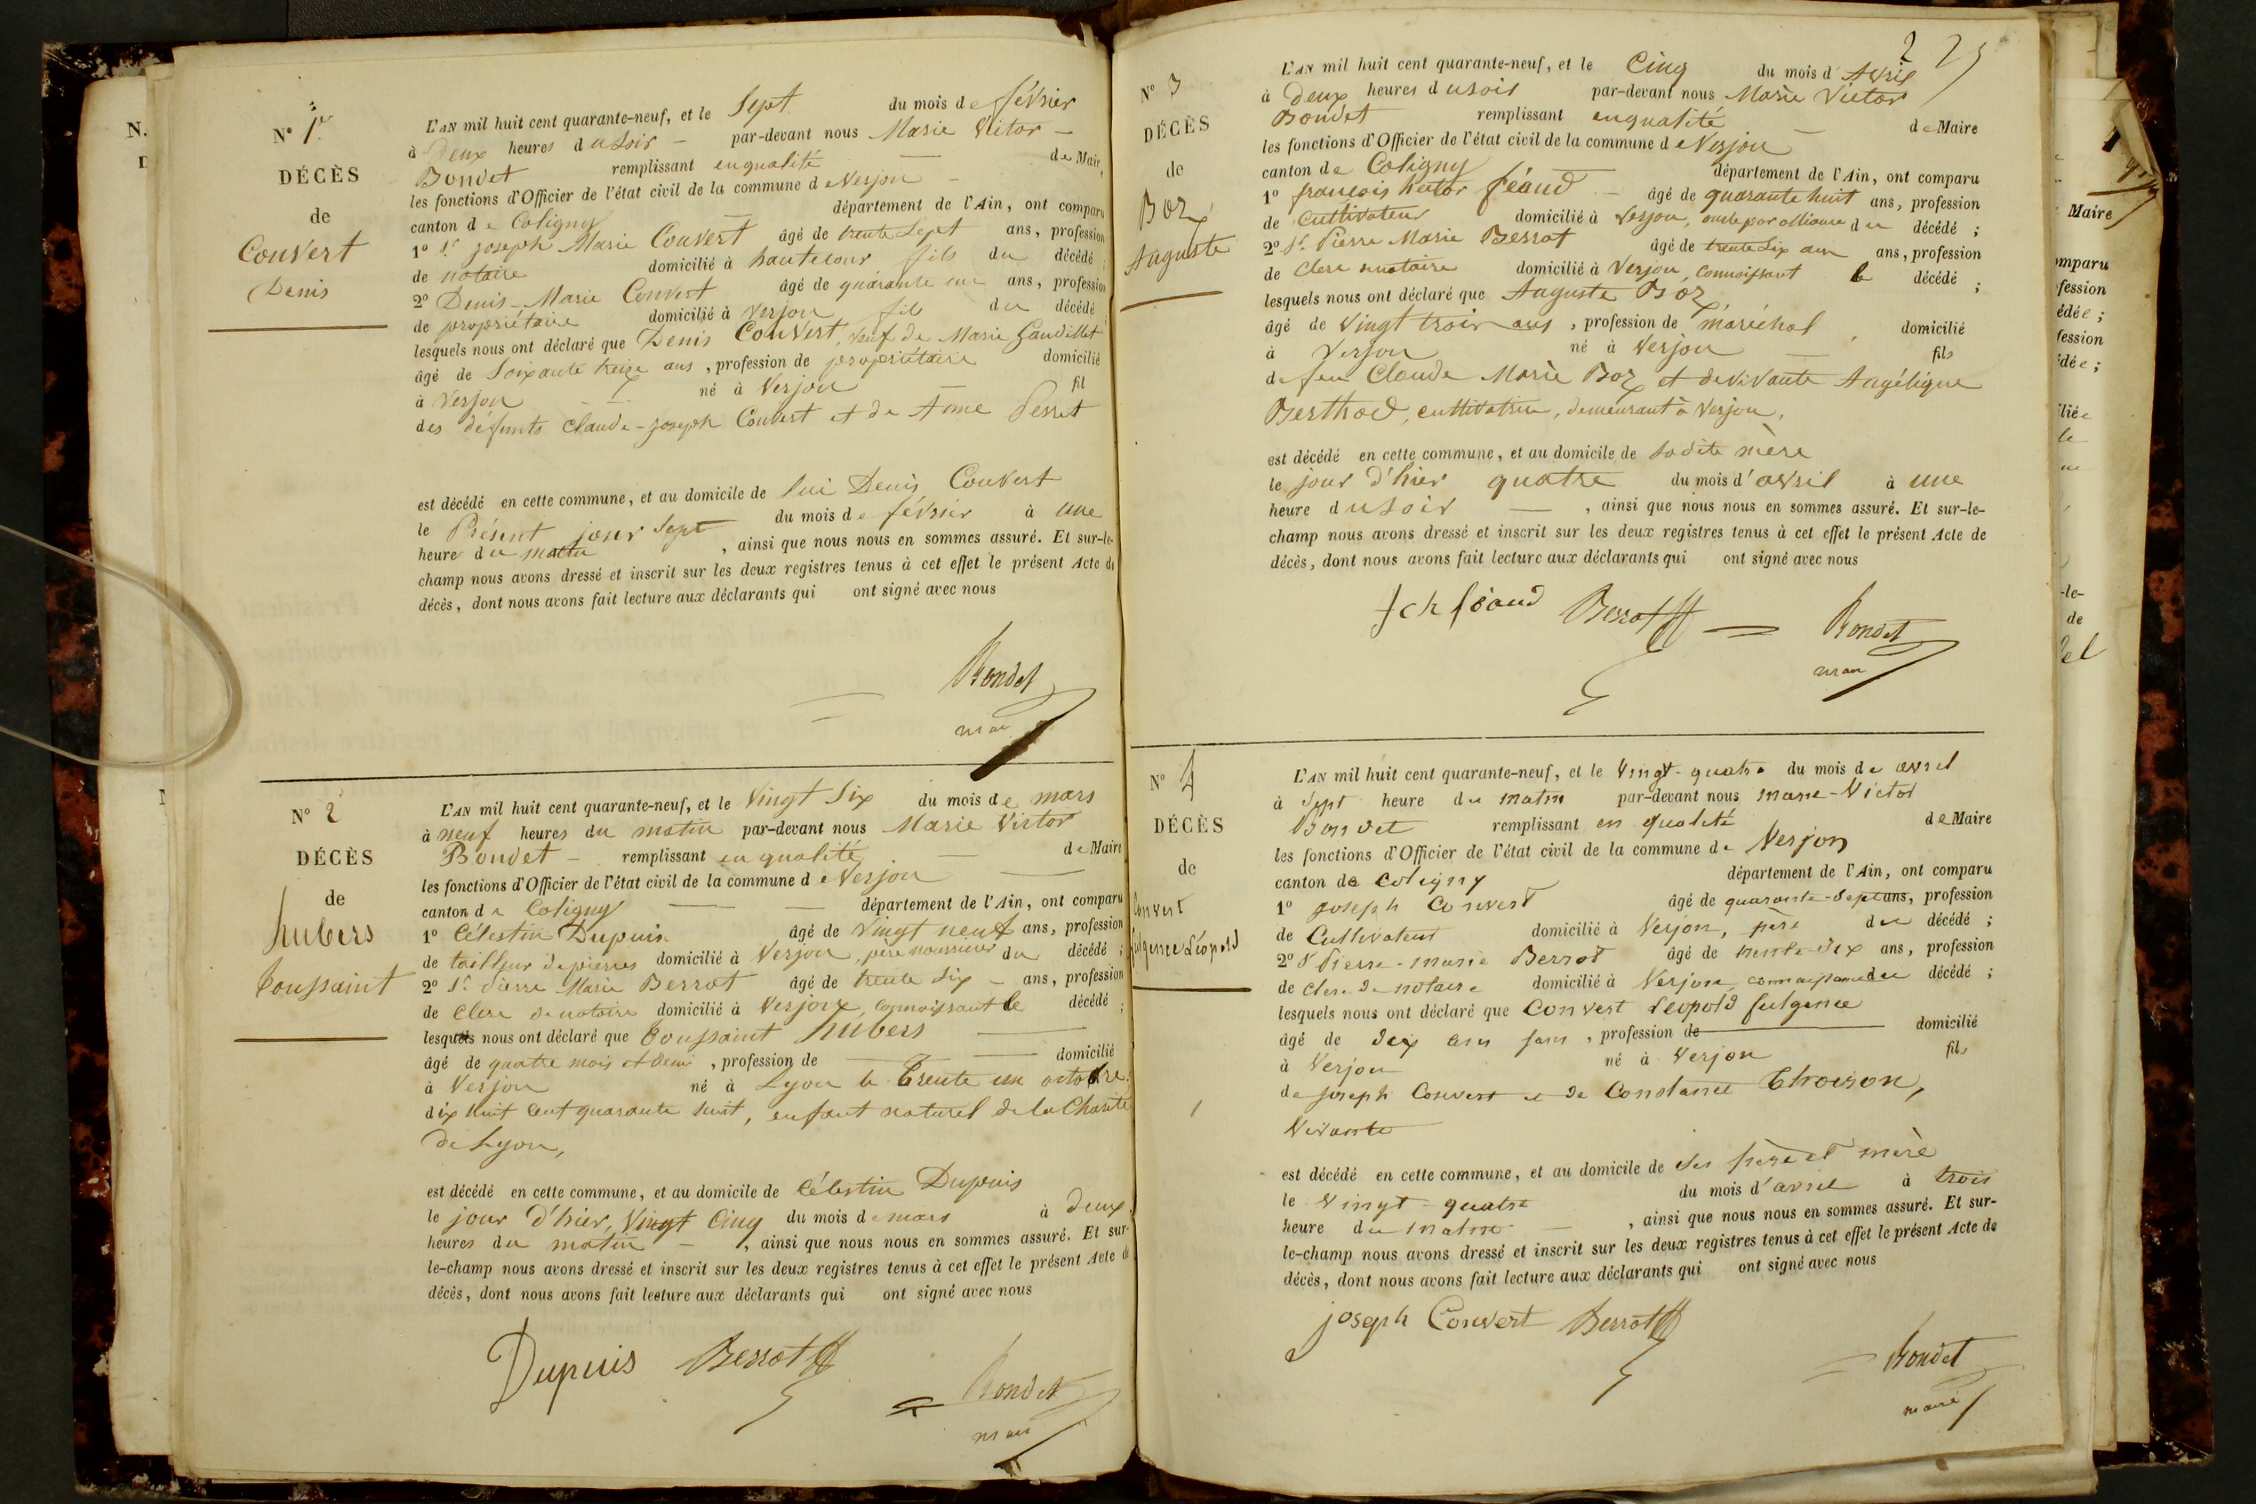 N° 1er
DÉCÈS
de
Convert
Denis
L'AN mil huit cent quarante-neuf, et le Sept du mois de février
à Deux heures du soir – par-devant nous Marie Victor –
Bondet remplissant en qualité — de Maire
les fonctions d'Officier de l'état civil de la commune de Verjon –
canton de Coligny — département de l'Ain, ont comparu
1° Sr. joseph Marie Convert âgé de trente Sept ans, profession
de notaire domicilié à hautecour fils du décédé ;
2° Denis-Marie Convert âgé de quarante un ans, profession
de propriétaire domicilié à Verjon fils du décédé
lesquels nous ont déclaré que Denis Convert, veuf de Marie Gaudillet
âgé de Soixante treize ans, profession de propriétaire domicilié
à Verjon né à Verjon — fil
des défunts Claude-joseph Convert et de Anne Perret
est décédé en cette commune, et au domicile de lui Denis Convert
le Présent jour Sept du mois de février à une
heure du matin , ainsi que nous nous en sommes assuré. Et sur-le-
champ nous avons dressé et inscrit sur les deux registres tenus à cet effet le présent Acte de
décès, dont nous avons fait lecture aux déclarants qui ont signé avec nous
Bondet
maire
N° 2
DÉCÈS
de
hubers
Toussaint
L'AN mil huit cent quarante-neuf, et le Vingt Six du mois de mars
à neuf heures du matin par-devant nous Marie Victor
Bondet – remplissant en qualité — de Maire
les fonctions d'Officier de l'état civil de la commune de Verjon —
canton de Coligny — — département de l'Ain, ont comparu
1° Célestin Dupuis âgé de Vingt neuf ans, profession
de tailleur de pierres domicilié à Verjon, père nourricier du décédé ;
2° Sr. Pierre Marie Berrot âgé de trente Six – ans, profession
de Clerc de notaire domicilié à Verjon, connoissant le décédé ;
lesquels nous ont déclaré que Toussaint hubers —
âgé de quatre mois et demi , profession de — — domicilié
à Verjon né à Lyon le Trente un octobre
dix huit cent quarante huit, enfant naturel de la Charité
de Lyon,
est décédé en cette commune, et au domicile de Célestin Dupuis
le jour d'hier, Vingt Cinq du mois de mars à Deux
heures du matin – , ainsi que nous nous en sommes assuré. Et sur-
le-champ nous avons dressé et inscrit sur les deux registres tenus à cet effet le présent Acte de
décès, dont nous avons fait lecture aux déclarants qui ont signé avec nous
Dupuis Berrot Bondet
maire
2 25
N° 3
DÉCÈS
de
Boz
Auguste
L'AN mil huit cent quarante-neuf, et le Cinq du mois d'Avril
à Deux heures du soir par-devant nous Marie Victor
Bondet remplissant en qualité — de Maire
les fonctions d'Officier de l'état civil de la commune de Verjon
canton de Coligny — département de l'Ain, ont comparu
1° françois hector féaud – âgé de quarante huit ans, profession
de Cultivateur domicilié à Verjon, oncle par alliance du décédé ;
2° Sr. Pierre Marie Berrot âgé de trente Six ans ans, profession
de Clerc notaire domicilié à Verjon, connoissant le décédé ;
lesquels nous ont déclaré que Auguste Boz,
âgé de Vingt trois ans , profession de maréchal , domicilié
à Verjon né à Verjon — fils
de feu Claude Marie Boz et de vivante Angélique
Berthod, cultivatrice, demeurant à Verjon,
est décédé en cette commune, et au domicile de sadite mère
le jour d'hier quatre du mois d'avril à une
heure du soir — , ainsi que nous nous en sommes assuré. Et sur-le-
champ nous avons dressé et inscrit sur les deux registres tenus à cet effet le présent Acte de
décès, dont nous avons fait lecture aux déclarants qui ont signé avec nous
féaud Berrot Bondet
maire
N° 4
DÉCÈS
de
Convert
fulgence Léopold
L'AN mil huit cent quarante-neuf, et le Vingt-quatre du mois de avril
à Sept heure du matin par-devant nous marie-Victor
Bondet remplissant en qualité de Maire
les fonctions d'Officier de l'état civil de la commune de Verjon
canton de Coligny département de l'Ain, ont comparu
1° joseph Convert âgé de quarante-sept ans, profession
de Cultivateur domicilié à Verjon, père du décédé ;
2° Sr Pierre-marie Berrot âgé de trente-six ans, profession
de clerc de notaire domicilié à Verjon, connaissance du décédé ;
lesquels nous ont déclaré que Convert Léopold fulgence
âgé de dix ans sans , profession de — domicilié
à Verjon né à Verjon fils
de joseph Convert et de Constance Thoizon,
Vivante
est décédé en cette commune, et au domicile de ses père et mère
le Vingt-quatre du mois d'avril à trois
heure du matin – , ainsi que nous nous en sommes assuré. Et sur-
le-champ nous avons dressé et inscrit sur les deux registres tenus à cet effet le présent Acte de
décès, dont nous avons fait lecture aux déclarants qui ont signé avec nous
joseph Convert Berrot Bondet
maire